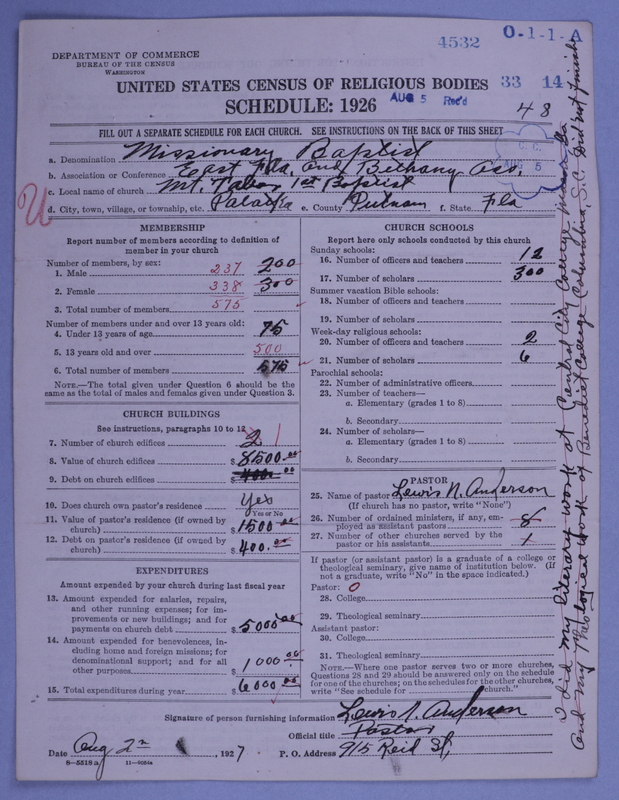 4532
O-1-1-A
DEPARTMENT OF COMMERCE
BUREAU OF THE CENSUS
WASHINGTON
UNITED STATES CENSUS OF RELIGIOUS BODIES
SCHEDULE: 1926
33 14
AUG 5 Rec'd
48
FILL OUT A SEPARATE SCHEDULE FOR EACH CHURCH. SEE INSTRUCTIONS ON THE BACK OF THIS SHEET
C. C.
AUG 5
a. Denomination Missionary Baptist
b. Association or Conference East Fla, and Bethany Aso,
c. Local name of church Mt. Tabor 1st Baptist
d. City, town, village, or township, etc. Palatka e. County Putnam f. State Fla
MEMBERSHIP
Report number of members according to definition of member in your church
Number of members, by sex:
1. Male 237 200
2. Female 338 300
3. Total number of members 575
Number of members under and over 13 years old:
4. Under 13 years of age 75
5. 13 years old and over 500
6. Total number of members 575
NOTE.—The total given under Question 6 should be the same as the total of males and females given under Question 3.
CHURCH BUILDINGS
See instructions, paragraphs 10 to 12
7. Number of church edifices 2 1
8. Value of church edifices $ 8500.00
9. Debt on church edifices $ 400.00
10. Does church own pastor's residence? Yes
Yes or No
11. Value of pastor's residence (if owned by church) $ 1500.00
12. Debt on pastor's residence (if owned by church) $ 400.00
EXPENDITURES
Amount expended by your church during last fiscal year
13. Amount expended for salaries, repairs, and other running expenses; for improvements or new buildings; and for payments on church debt $ 5000.00
14. Amount expended for benevolences, including home and foreign missions; for denominational support; and for all other purposes $ 1000.00
15. Total expenditures during year $ 6000.00
CHURCH SCHOOLS
Report here only schools conducted by this church
Sunday schools:
16. Number of officers and teachers 12
17. Number of scholars 300
Summer vacation Bible schools:
18. Number of officers and teachers
19. Number of scholars
Week-day religious schools:
20. Number of officers and teachers 2
21. Number of scholars 6
Parochial schools:
22. Number of administrative officers
23. Number of teachers—
a. Elementary (grades 1 to 8)
b. Secondary
24. Number of scholars—
a. Elementary (grades 1 to 8)
b. Secondary
PASTOR
25. Name of pastor Lewis N. Anderson
(If church has no pastor, write "None")
26. Number of ordained ministers, if any, employed as assistant pastors 8
27. Number of other churches served by the pastor or his assistants
If pastor (or assistant pastor) is a graduate of a college or theological seminary, give name of institution below. (If not a graduate, write "No" in the space indicated.)
Pastor: O
28. College
29. Theological seminary
Assistant pastor:
30. College
31. Theological seminary
NOTE.—Where one pastor serves two or more churches, Questions 28 and 29 should be answered only on the schedule for one of the churches; on the schedules for the other churches, write "See schedule for church."
Signature of person furnishing information Lewis N. Anderson
Official title Pastor
Date Aug 2nd, 1927 P. O. Address 915 Reid St,
8—5518a 11—9064a
I did my literary work at Central City College
and my Theological work at Benedict College Columbia, S.C. Did not finish